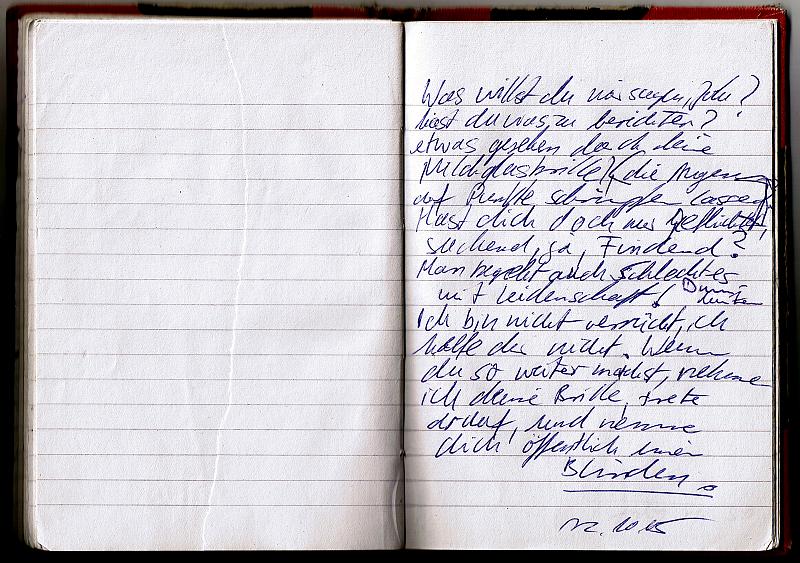 Was willst du mir sagen, Du?
hast du was zu berichten?
etwas gesehen durch deine
Milchglasbrille? (die Augen
auf Punkte schrumpfen lassen)
Hast dich doch nur geflüchtet,
suchend, ja, Findend?
Man begeht auch Schlechtes
mit Leidenschaft!
Ich bin nicht verrückt, ich
helfe dir nicht. Wenn
du so weiter machst, nehme
ich deine Brille, trete
darauf, und nenne
dich öffentlich einen
Blinden.